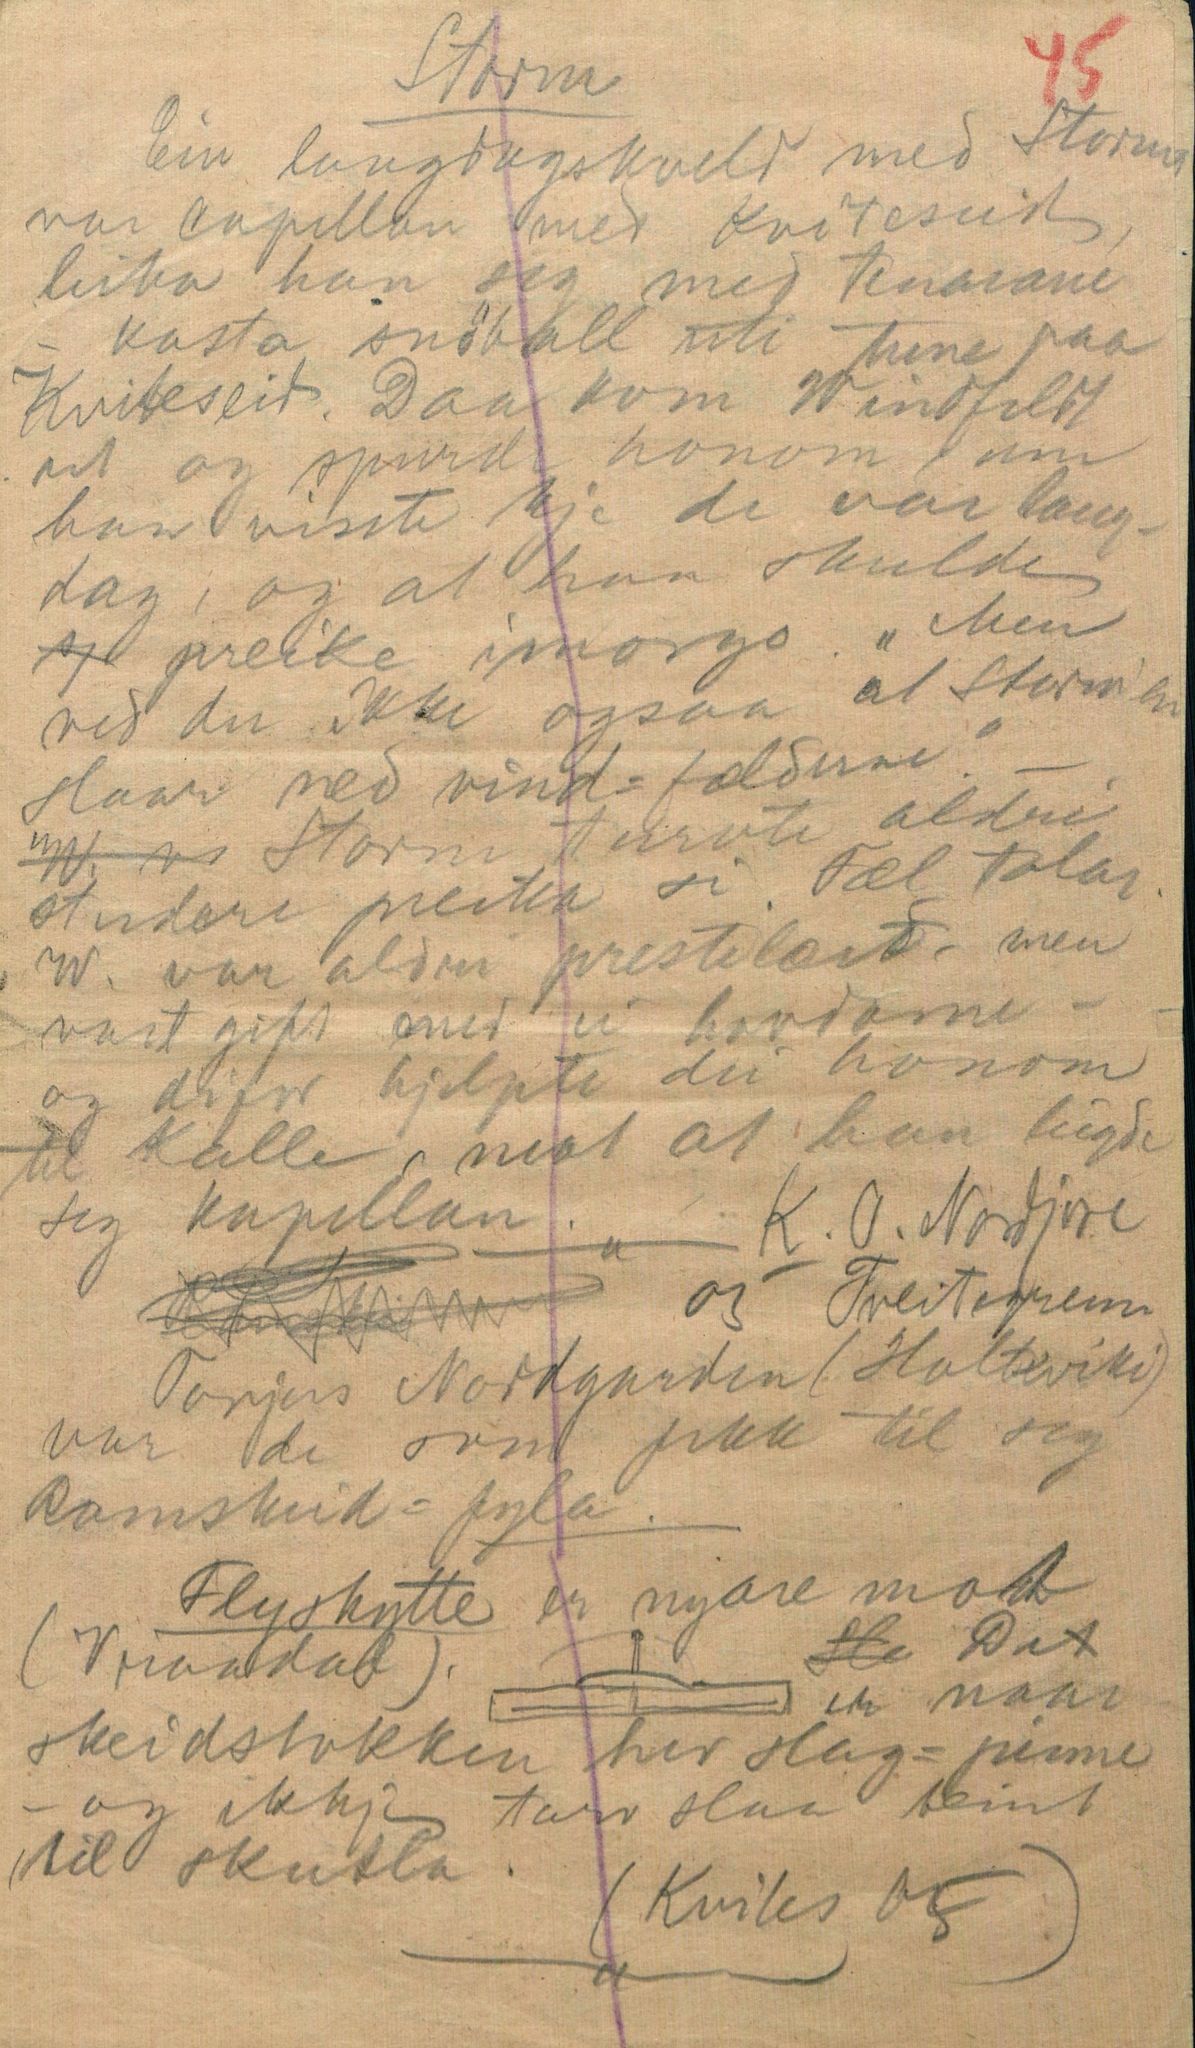 45
Storm
Ein laugdagskveld med Storm
var capellan med Kviteseid,
leika han seg med tenarane
- kasta snöball uti tune paa
Kviteseid. Daa kom Windfeldt
ut og spurde honom um
han visste kje de var laug-
dag, og at han skulde
preike imorgo. "Men
ved du ikke ogsaa at Stormen
slaar ned vind=fælderne". -
Storm turvte aldri
studere preika si. Tæl talar.
W. var aldri prestelærd - men
vart gift med ei hovdame -
og difor hjelpte dei honom
til Kalle, mot at han leigde
seg kapellan.
K. O. Nordjore
og Treitegrenn
Torjus Nordgarden (Holteviki)
var de som fekk til seg
Ramskeid=fyla.
Flyskytte er nyare mot
(Vraadal). Dat
er naar
skeidstokken hev slag=pinne
- og ikkje tarv slaa beint
til skutla.
(Kvites og)